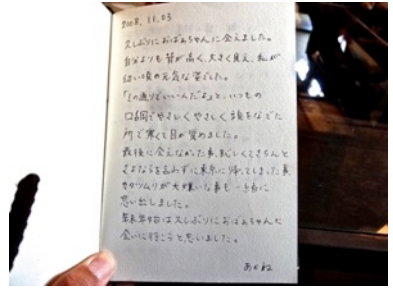 2008.11.03
久しぶりにおばあちゃんに会えました。
自分よりも背が高く、大きく見え、私が
幼い頃の元気な姿でした。
「その通りでいーんだよ」と、いつもの
口調でやさしくやさしく頭をなでた
所で寒くて目が覚めました。
最後に会えなかった事、忙しくてきちんと
さよならを言わずに東京に帰ってしまった事
カタツムリが大嫌いな事も一緒に
思い出しました。
年末年始は久しぶりにおばあちゃんに
会いに行こうと思いました。
あかね